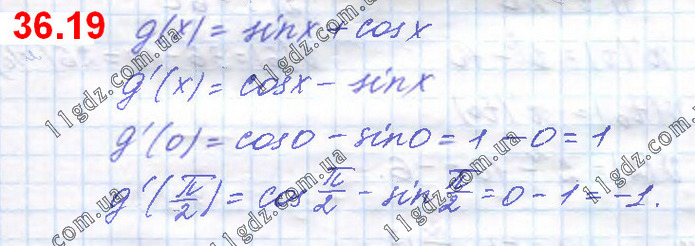 36.19
g(x) = sinx + cosx
g'(x) = cosx - sinx
g'(0) = cos0 - sin0 = 1 - 0 = 1
g'(π/2) = cos π/2 - sin π/2 = 0 - 1 = -1.
11gdz.com.ua
11gdz.com.ua
11gdz.com.ua
11gdz.com.ua